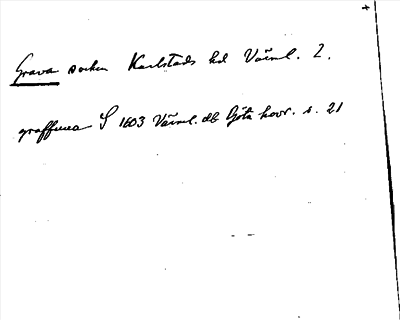 Grava socken Karlstads hd Värml. L.
graffuea S 1603 Värml. db Göta hovr. s. 21